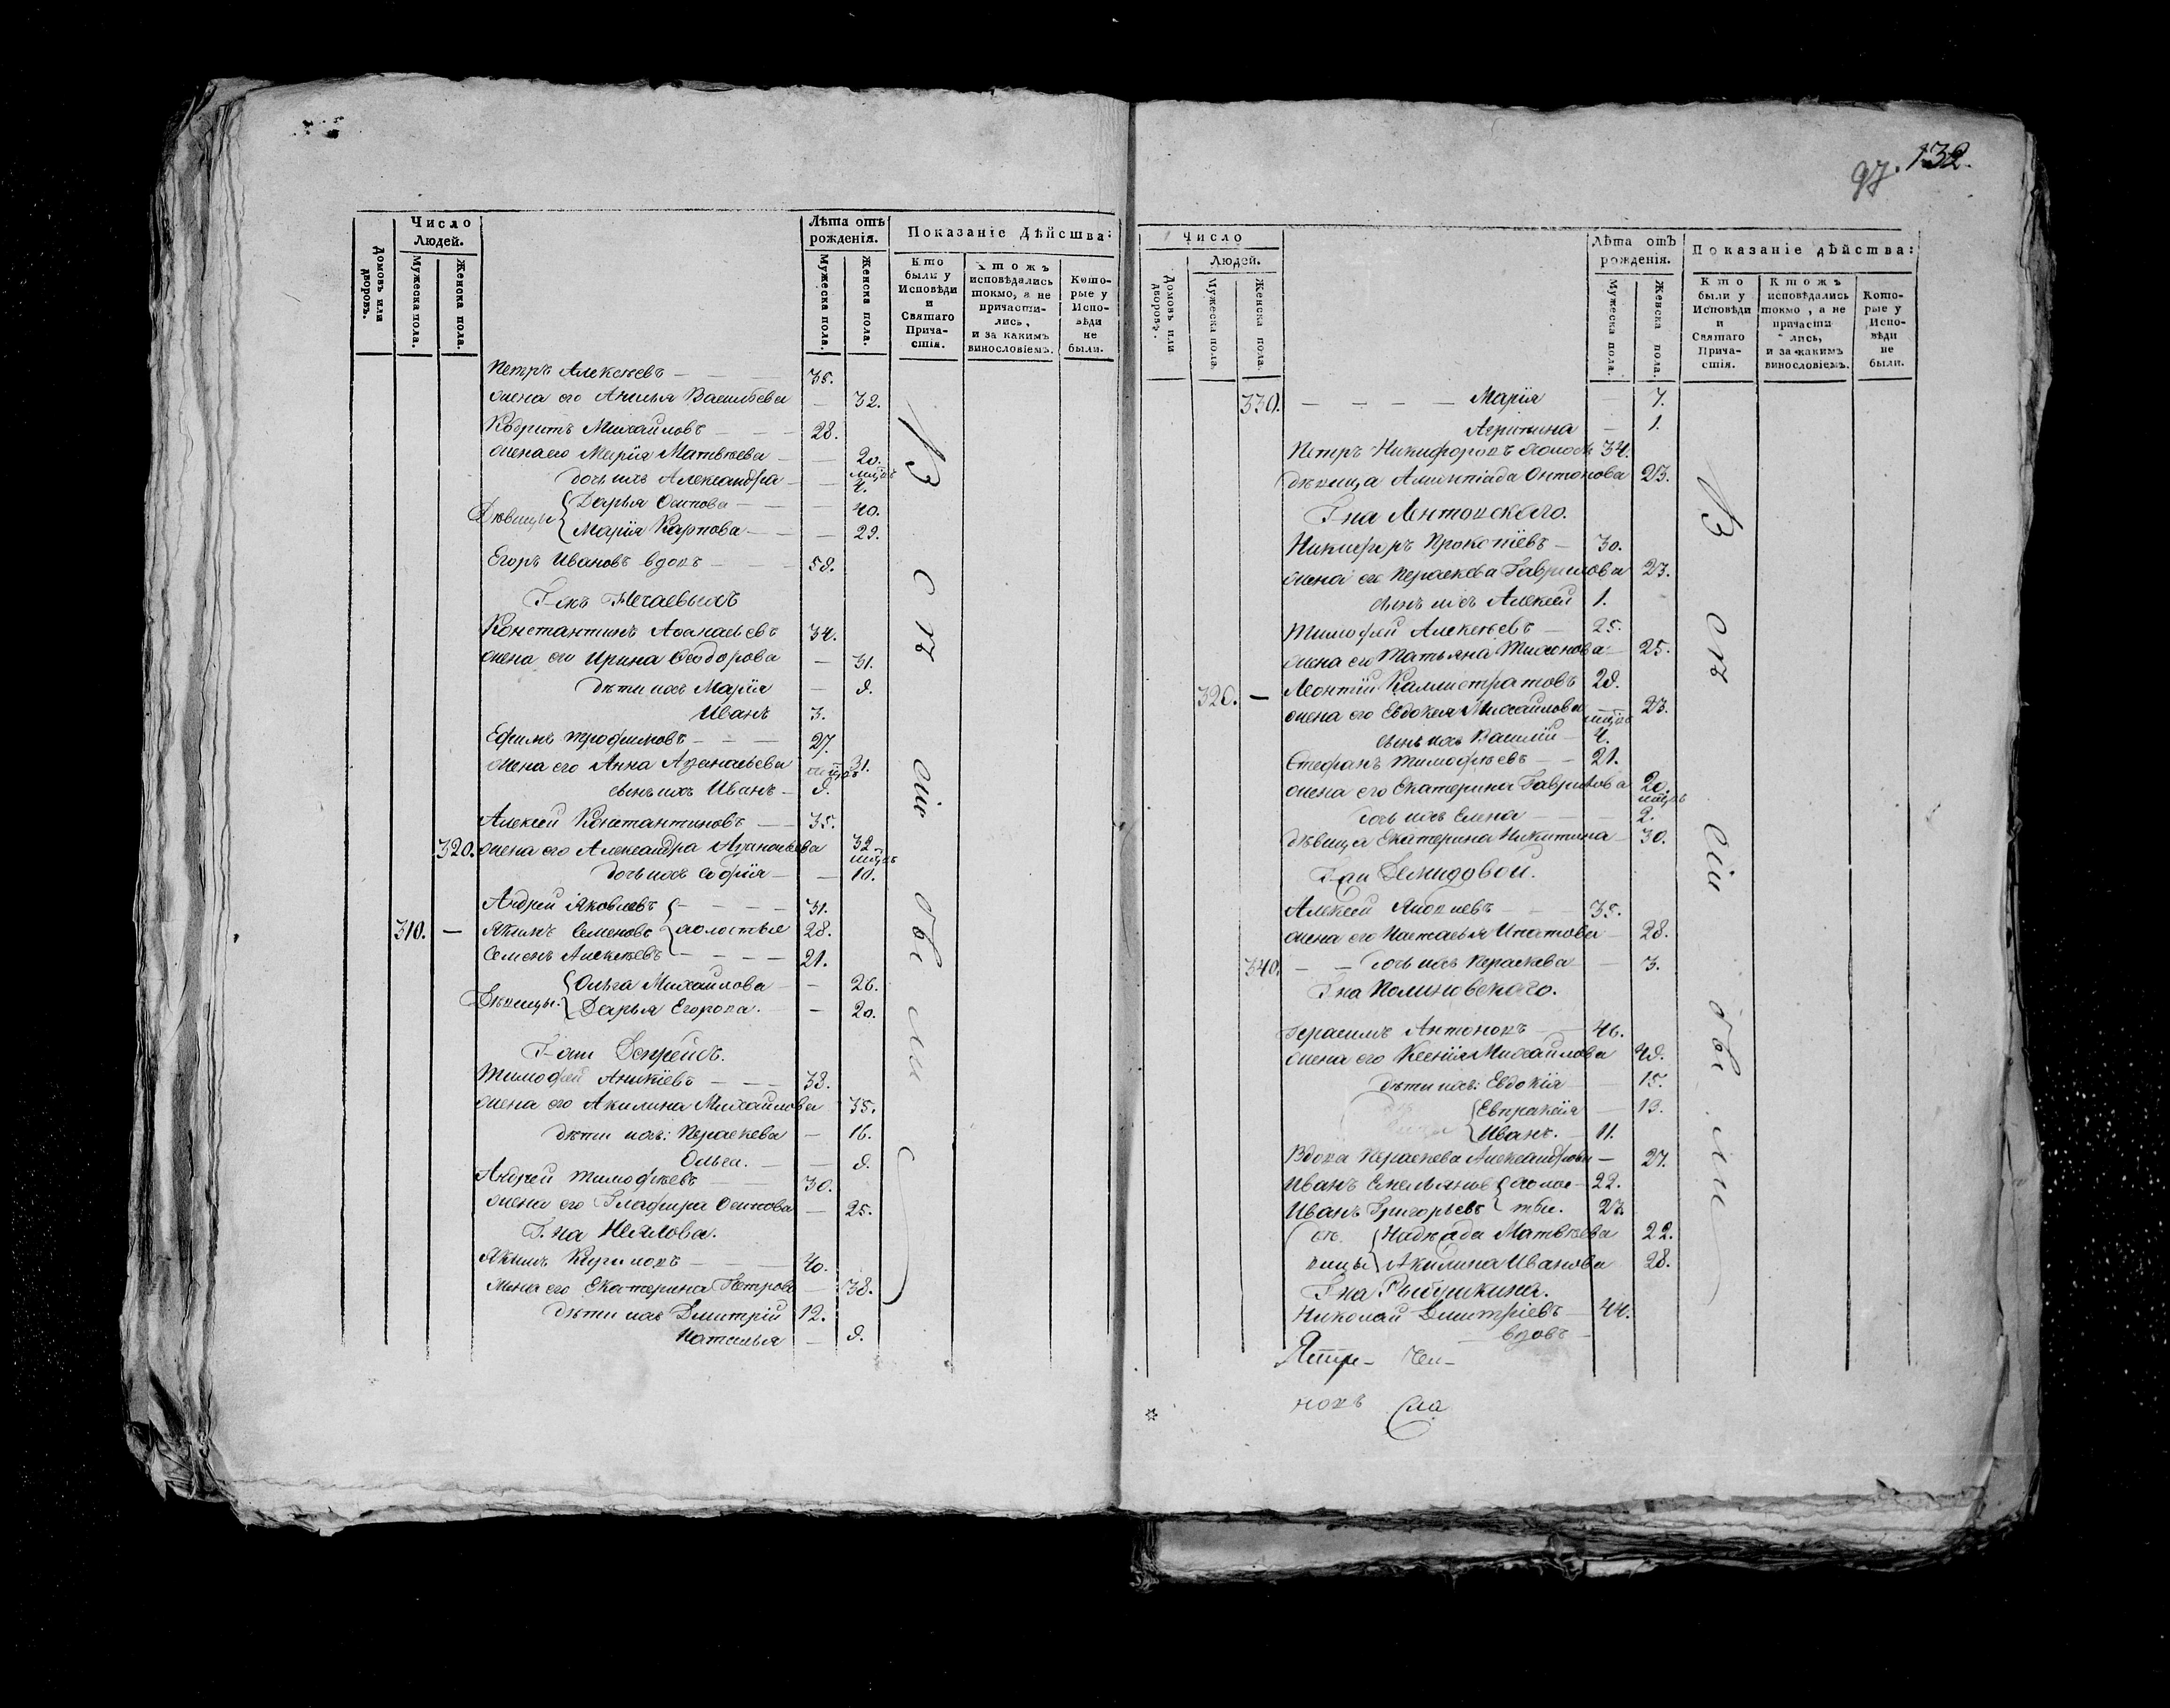 Число Людей.
Домовъ или дворовъ.
Мужеска пола.
Женска пола.
Лѣта отъ рожденія.
Мужеска пола.
Женска пола.
Показаніе Дѣйства:
Кто были у Исповѣди и Святаго Причастія.
Ктожъ исповѣдались токмо, а не причастились, и за какимъ винословіемъ.
Которые у Исповѣди не были.
Петръ Алексѣевъ 35.
жена его Васильева 32.
Михайловъ 28.
жена его Марія Матвѣева 20.
дочь ихъ Александра 4.
Дѣвицы Дарья Осипова 40.
Марія Карпова 29.
Егоръ Ивановъ вдовъ 58.
Г-жъ Нечаевыхъ
Константинъ Аѳанасьевъ 34.
жена его Ирина Ѳедорова 31.
дѣти ихъ Марія 8.
Иванъ 3.
Ефимъ Трофимовъ 27.
жена его Анна Аѳанасьева 31.
сынъ ихъ Иванъ 8.
Алексѣй Константиновъ 35.
320. жена его Александра Аѳанасьева 32
дочь ихъ Софія 10.
Андрей Яковлевъ 31.
310. Якимъ Семеновъ холостые 28.
Семенъ Алексѣевъ 21.
Ольга Михайлова 26.
Дѣвицы. Дарья Егорова. 20.
Г-жи
Тимофей Аникіевъ 38.
жена его Акилина Михайлова 35.
дѣти ихъ: Параскева 16.
Ольга. 8.
Андрей Тимофѣевъ 30.
жена его Глафира Осипова 25.
Г. на Неялова.
Якимъ 40.
жена его Екатерина Петрова 38.
дѣти ихъ Дмитрій 12.
Наталья 8.
Вс сіи были
97. 132.
Число
Людей.
Домовъ или дворовъ.
Мужеска пола.
Женска пола.
Лѣта отъ рожденія.
Мужеска пола.
Женска пола.
Показаніе дѣйства:
Кто были у Исповѣди и Святаго Причастія.
Ктожъ исповѣдались токмо, а не причастились, и за какимъ винословіемъ.
Которые у Исповѣди не были.
330. Марія 7.
1.
Петръ Никифоровъ холостъ 34.
дѣвица Антонова 23.
Г на
Никифоръ Прокопіевъ 30.
жена его Параскева Гаврилова 23.
сынъ ихъ Алексѣй 1.
Тимофей Алексѣевъ 25.
жена его Татьяна Тихонова 25.
320. Леонтій Каллистратовъ 28.
жена его Евдокея Михайлова 23.
сынъ ихъ Василій 4.
Стефанъ Тимофѣевъ 21.
жена его Екатерина Гаврилова 20.
дочь ихъ Елена 2.
дѣвица Екатерина Никитина 30.
Г-жи Демидовой.
Алексѣй Яковлевъ 35.
жена его Настасья Ипатова 28.
340. дочь ихъ Параскева 3.
Г на Полиновскаго.
Герасимъ Антоновъ 46.
жена его Ксенія Михайлова 48.
дѣти ихъ: Евдокія 15.
Евпраксія 13.
Иванъ. 11.
Вдова Параскева Александрова 27.
Иванъ Емельяновъ холос- 22.
Иванъ Григорьевъ тые. 27.
дѣ- Надежда Матвѣева 22.
вицы Акилина Иванова 28.
Г на Рыбушкина.
Николай Дмитріевъ 44.
вдовъ
Вс сіи были
новъ